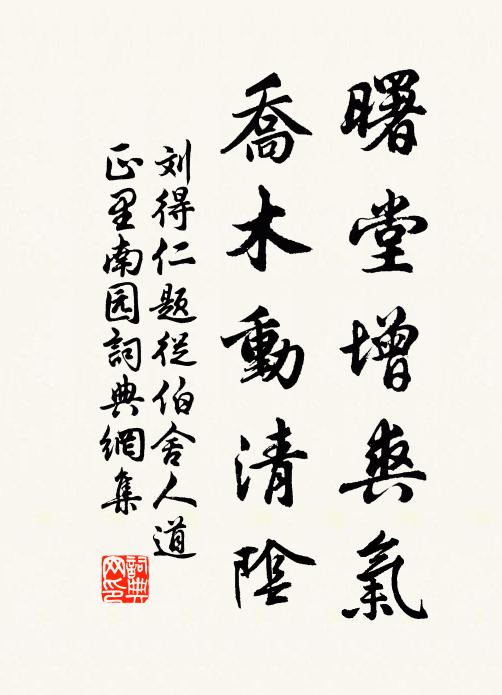 曙堂增爽氣
喬木動清陰
刘得仁题從伯舍人道
正里南园詞典網集
詞典網印